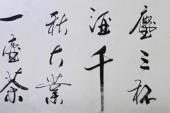 塵三杯
酒千
秋大業
一壺茶